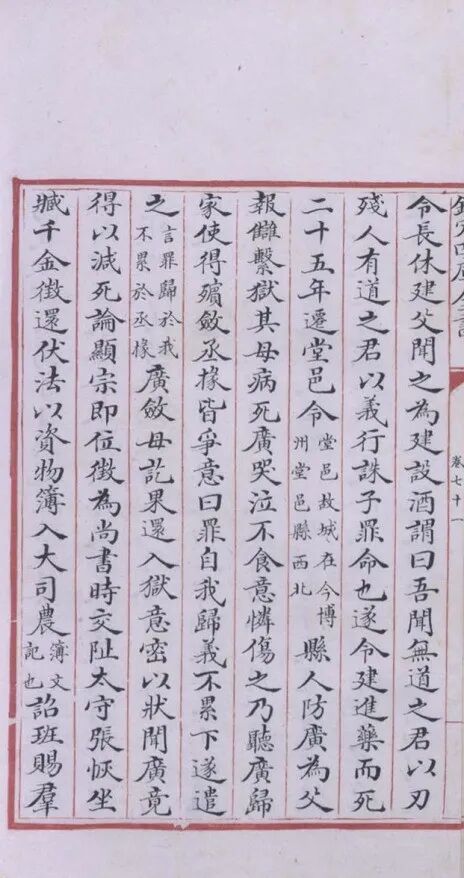 欽定四庫全書
卷七十一
令長休建父聞之為建設酒謂曰吾聞無道之君以刃
殘人有道之君以義行誅子罪命也遂令建進藥而死
二十五年遷堂邑令堂邑故城在今博州堂邑縣西北縣人防廣為父
報讎繫獄其母病死廣哭泣不食意憐傷之乃聽廣歸
家使得殯斂丞掾皆爭意曰罪自我歸義不累下遂遣
之言罪歸於我不累於丞掾廣斂母訖果還入獄意密以狀聞廣竟
得以減死論顯宗即位徵為尚書時交阯太守張恢坐
臧千金徵還伏法以資物簿入大司農簿文記也詔班賜羣